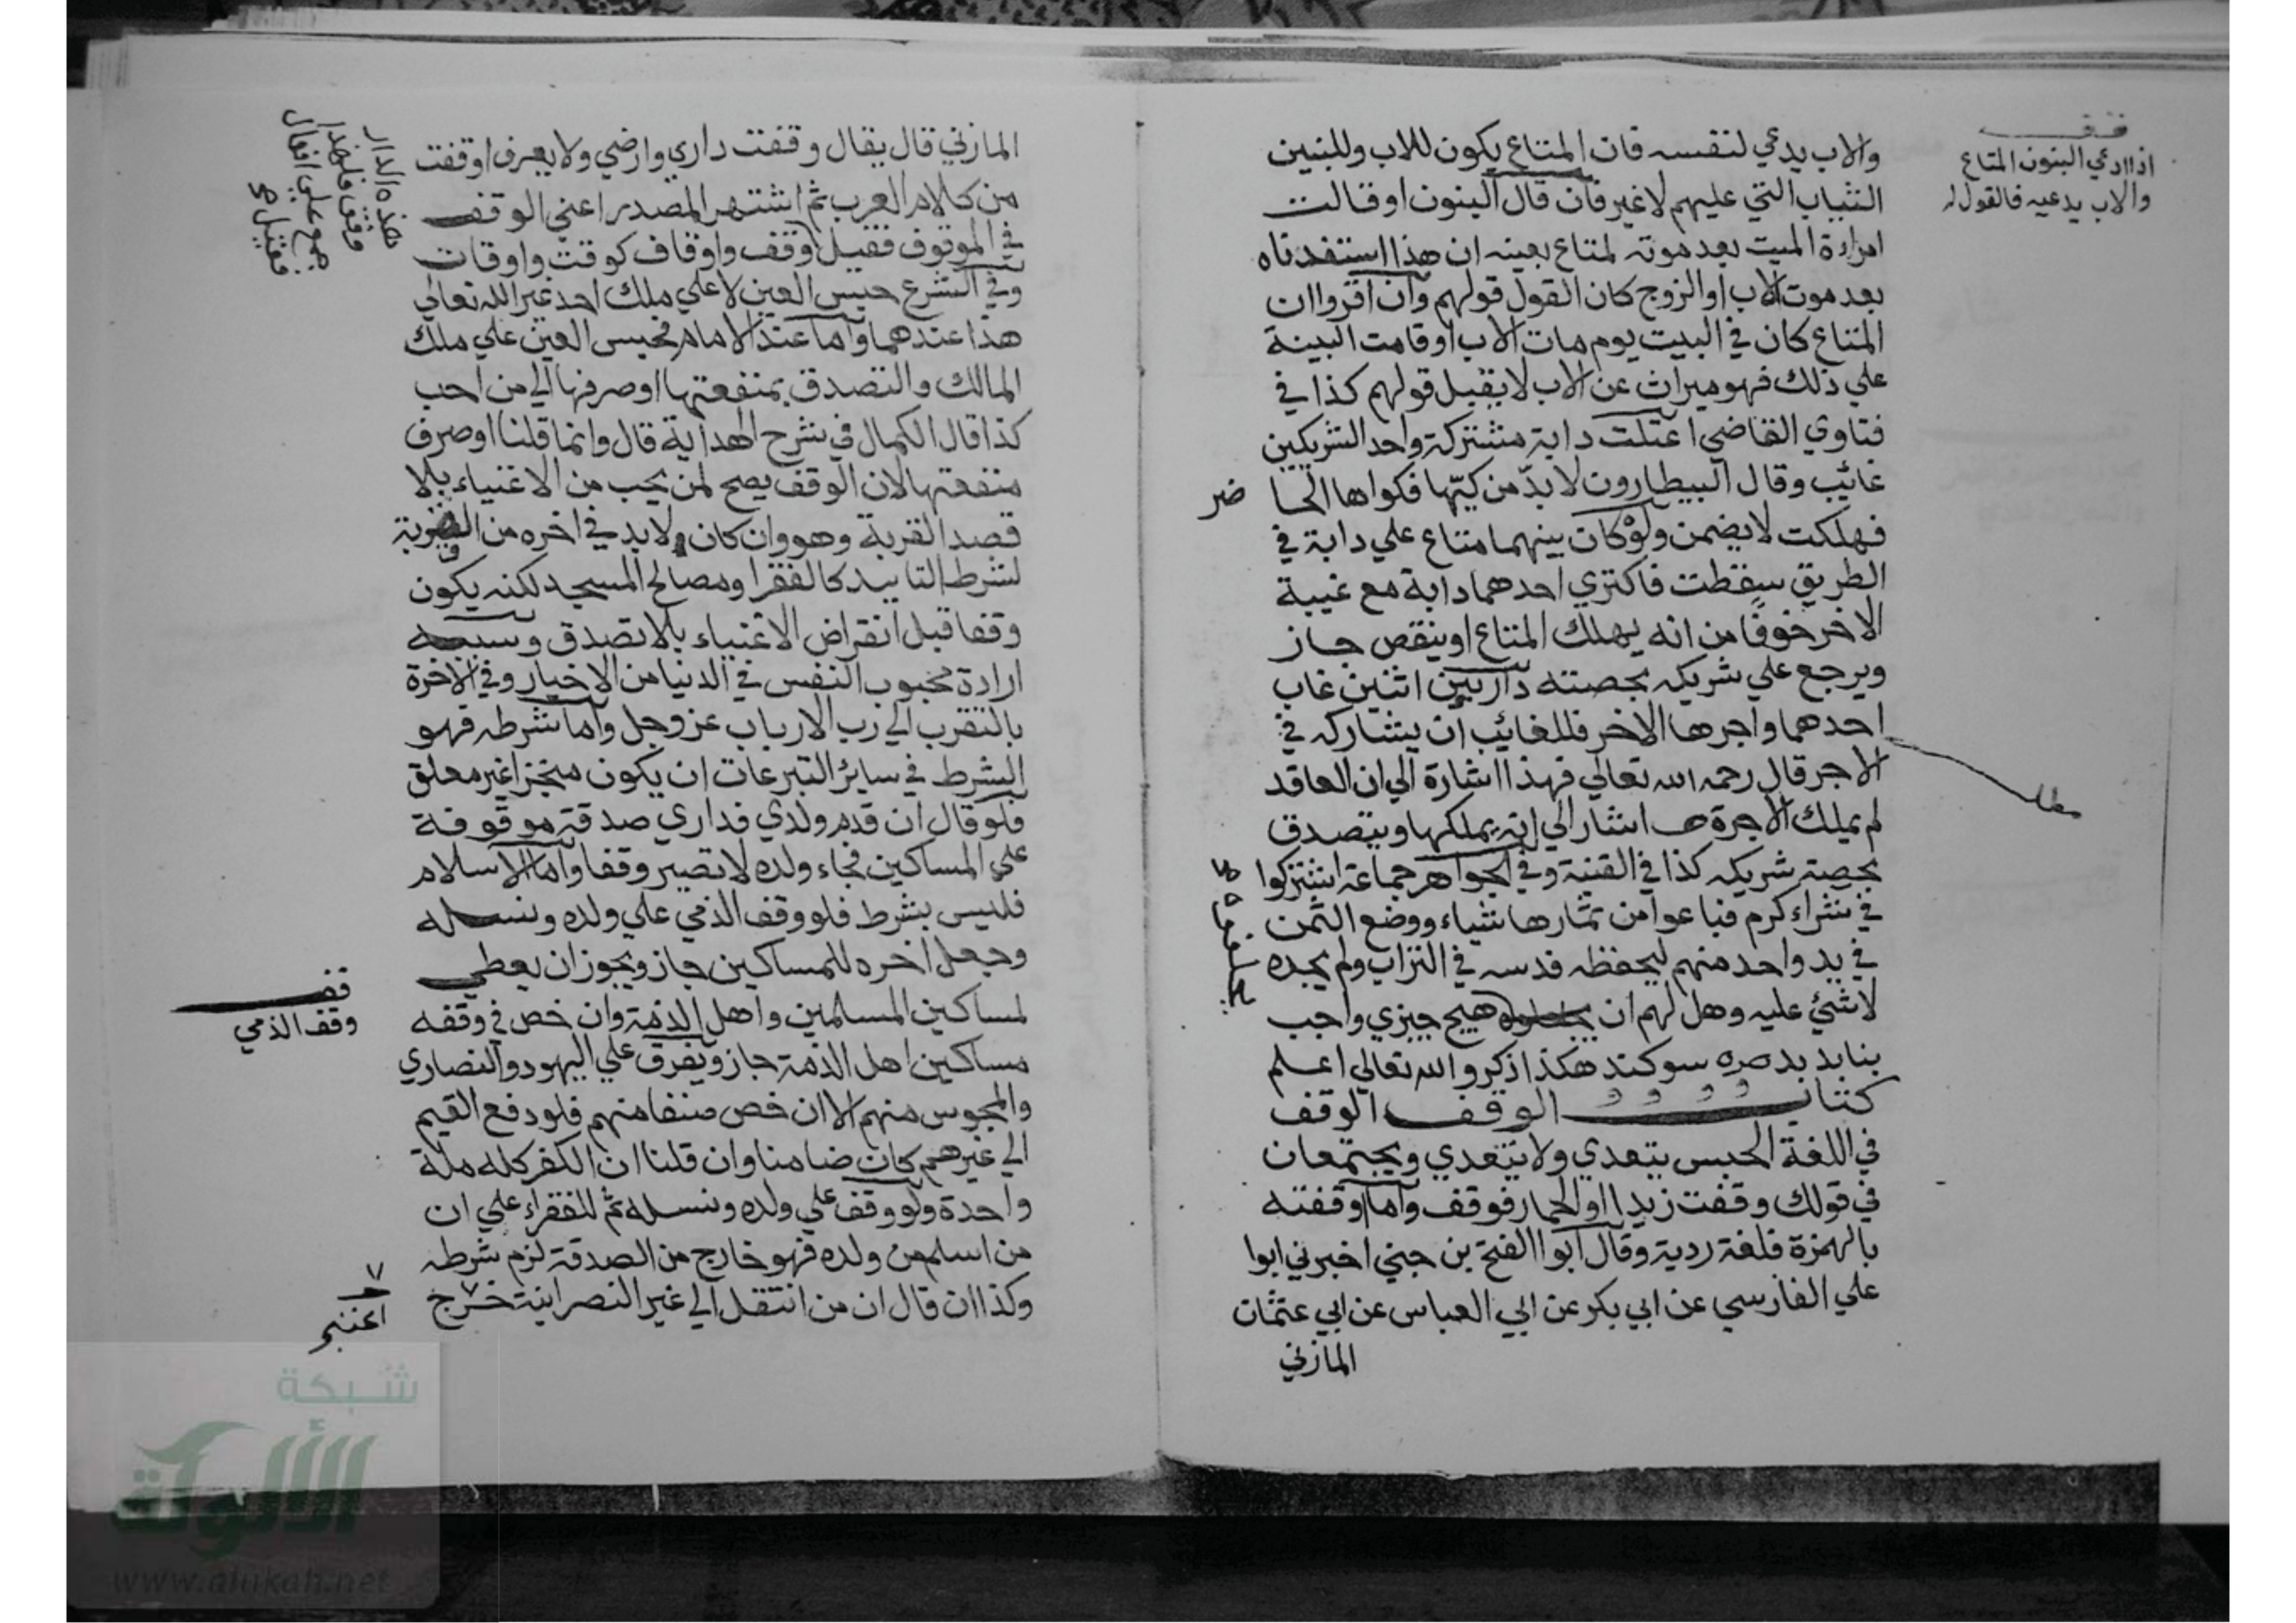 والاب يدعي لنفسه فان المتاع يكون للاب وللبنين
الثياب التي عليهم لا غير فان قال البنون او قالت
امراءة الميت بعد موته لمتاع بعينه ان هذا استفدناه
بعد موت الاب او الزوج كان القول قولهم وان اقروا ان
المتاع كان في البيت يوم مات الاب او قامت البينة
علي ذلك فهو ميراث عن الاب لا يقبل قولهم كذا في
فتاوي القاضي اعتلت دابة مشتركة واحد الشريكين
غائب وقال البيطارون لا بد من كيّها فكواها الحا ضر
فهلكت لا يضمن ولو كان بينهما متاع علي دابة في
الطريق سقطت فاكتري احدهما دابة مع غيبة
الاخر خوفًا من انه يهلك المتاع او ينقص جاز
ويرجع علي شريكه بحصته دار بين اثنين غاب
احدهما واجرها الاخر فللغائب ان يشاركه في
الاجر قال رحمه الله تعالي فهذا اشارة الي ان العاقد
لم يملك الاجرة اشار الي انه يملكها ويتصدق
بحصة شريكه كذا في القنية وفي الجواهر جماعة اشتركوا
في شراء كرم فباعوا من ثمارها شياء ووضع الثمن
في يد واحد منهم ليحفظه فدسه في التراب ولم يجده
لا شئ عليه وهل لهم ان هيج جيزي واجب
بنابد بدصره سوكند هكذا ذكر والله تعالي اعلم
كتاب الوقف الوقف
في اللغة الحبس يتعدي ولا يتعدي ويجتمعان
في قولك وقفت زيدا او الحمار فوقف واما اوقفته
بالهمزة فلغة ردية وقال ابوا الفتح بن جني اخبرني ابوا
علي الفارسي عن ابي بكر عن ابي العباس عن ابي عثمان
المازني
قف
اذا ادعي البنون المتاع
والاب يدعيه فالقول له
مطلـ
المازني قال يقال وقفت داري وارضي ولا يعرف اوقفت
من كلام العرب ثم اشتهر المصدر اعني الوقف
في الموقوف فقيل وقف واوقاف كوقت واوقات
وفي الشرع حبس العين لا علي ملك احد غير الله تعالي
هذا عندهما واما عند الامام فحبس العين علي ملك
المالك والتصدق بمنفعتها او صرفها الي من احب
كذا قال الكمال في شرح الهداية قال وانما قلنا او صرف
منفعتها لان الوقف يصح لمن يحب من الاغنياء بلا
قصد القربة وهو وان كان ولا بد في اخره من القربة
لشرط التابيد كالفقرا ومصالح المسجد لكنه يكون
وقفا قبل انقراض الاغنياء بلا تصدق وسببه
ارادة محبوب النفس في الدنيا من الاخيار وفي الاخرة
بالتقرب الي رب الارباب عز وجل واما شرطه فهو
الشرط في سائر التبرعات ان يكون منجزا غير معلق
فلو قال ان قدم ولدي فداري صدقة موقوفة
علي المساكين فجاء ولده لا تصير وقفا واما الاسلام
فليس بشرط فلو وقف الذمي علي ولده ونسله
وجعل اخره للمساكين جاز ويجوز ان يعطي
لمساكين المسلمين واهل الذمة وان خص في وقفه
مساكين اهل الذمة جاز ويفرق علي اليهود والنصاري
والمجوس منهم الا ان خص صنفا منهم فلو دفع القيم
الي غيرهم كان ضامنا وان قلنا ان الكفر كله ملة
واحدة ولو وقف علي ولده ونسله ثم للفقراء علي ان
من اسلم من ولده فهو خارج من الصدقة لزم شرطه
وكذا ان قال ان من انتقل الي غير النصرانية خرج
هذه الدار
وقف
جمع علي افعال
فقيل
قف
وقف الذمي
اعتبر
شبكة
الألوكة
www.alukah.net